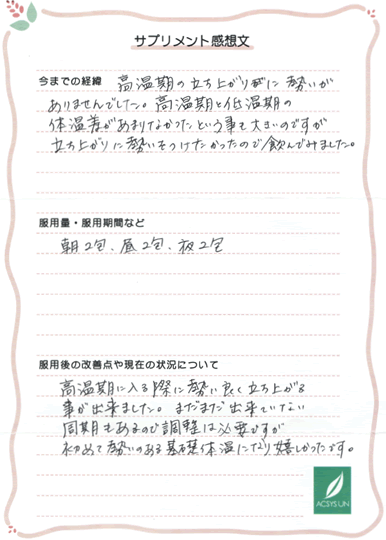 サプリメント感想文
今までの経緯 高温期の立ち上がりに勢いが
ありませんでした。高温期と低温期の
体温差があまりなかったという事も大きいのですが
立ち上がりに勢いをつけたかったので飲んでみました。
服用量・服用期間など
朝2包、昼2包、夜2包
服用後の改善点や現在の状況について
高温期に入る際に勢い良く立ち上がる
事が出来ました。まだまだ出来ていない
周期もあるので調整は必要ですが
初めて勢いのある基礎体温になり嬉しかったです。
ACSYS UN